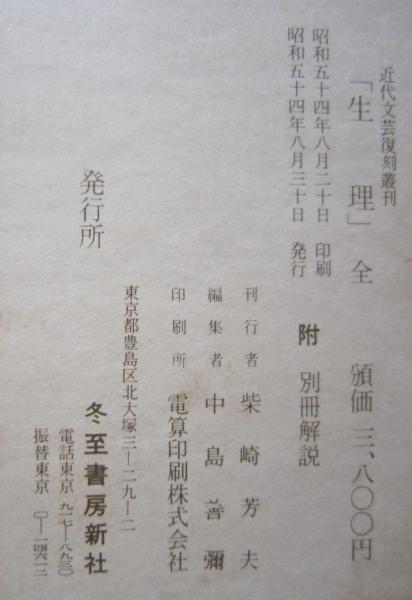 近代文芸復刻叢刊
「生理」全 頒価 三、八〇〇円
附 別冊解説
昭和五十四年八月二十日 印刷
昭和五十四年八月三十日 発行
刊行者 柴崎芳夫
編集者 中島善彌
印刷所 電算印刷株式会社
発行所
東京都豊島区北大塚三—二九—二
冬至書房新社
電話東京 九一七—八九三〇
振替東京 〇—一四六一二